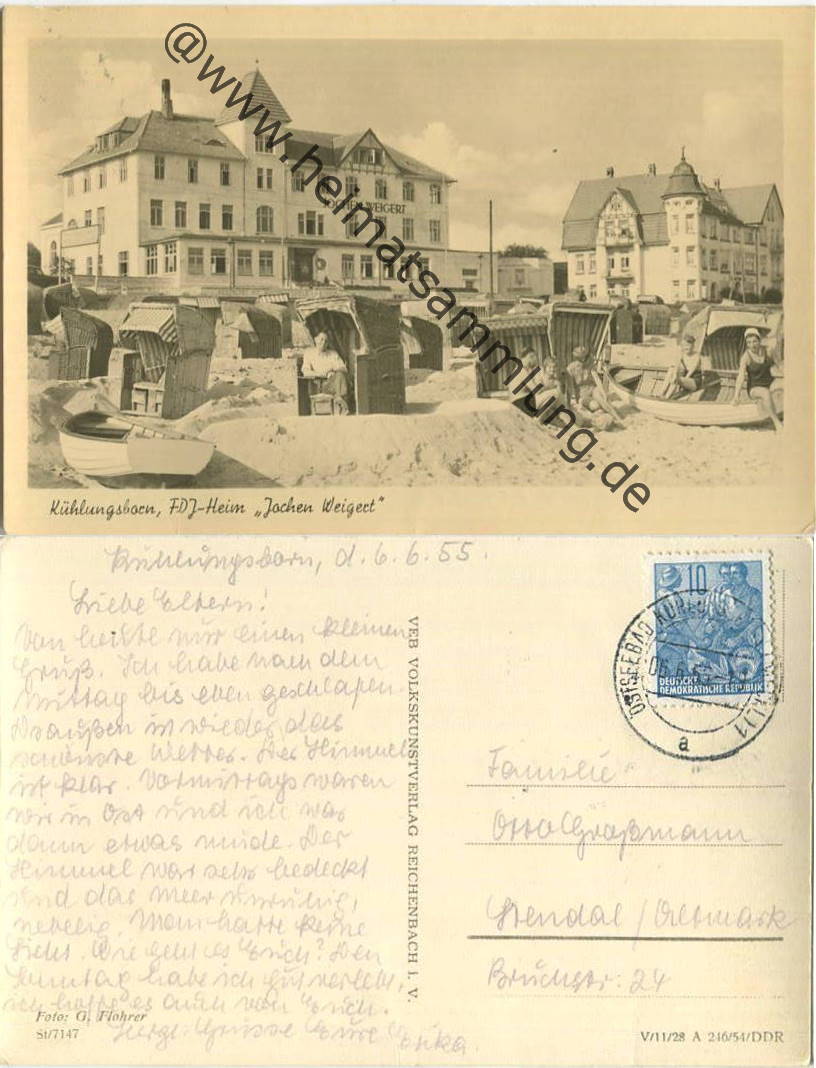 @www.heimatsammlung.de
JOCHEN WEIGERT
Kühlungsborn, FDJ-Heim „Jochen Weigert"
Kühlungsborn, d. 6.6.55.
Liebe Eltern!
Von heute nur einen kleinen
Gruß. Ich habe nach dem
Mittag bis eben geschlafen.
Draußen ist wieder das
schönste Wetter. Der Himmel
ist klar. Vormittags waren
wir in Ost und ich war
dann etwas müde. Der
Himmel war sehr bedeckt
und das Meer unruhig,
nebelig. Man hatte keine
Sicht. Wie geht es Euch? Den
Sonntag habe ich gut verlebt,
ich hoffe es auch von Euch.
Herzl. Grüsse Eure Erika.
Foto: G. Flohrer
St/7147
VEB VOLKSKUNSTVERLAG REICHENBACH i. V.
10
DEUTSCHE
DEMOKRATISCHE REPUBLIK
OSTSEEBAD KÜHLUNGSBORN
a
Familie
Otto Graßmann
Stendal / Altmark
Bruchstr. 24
V/11/28 A 246/54/DDR